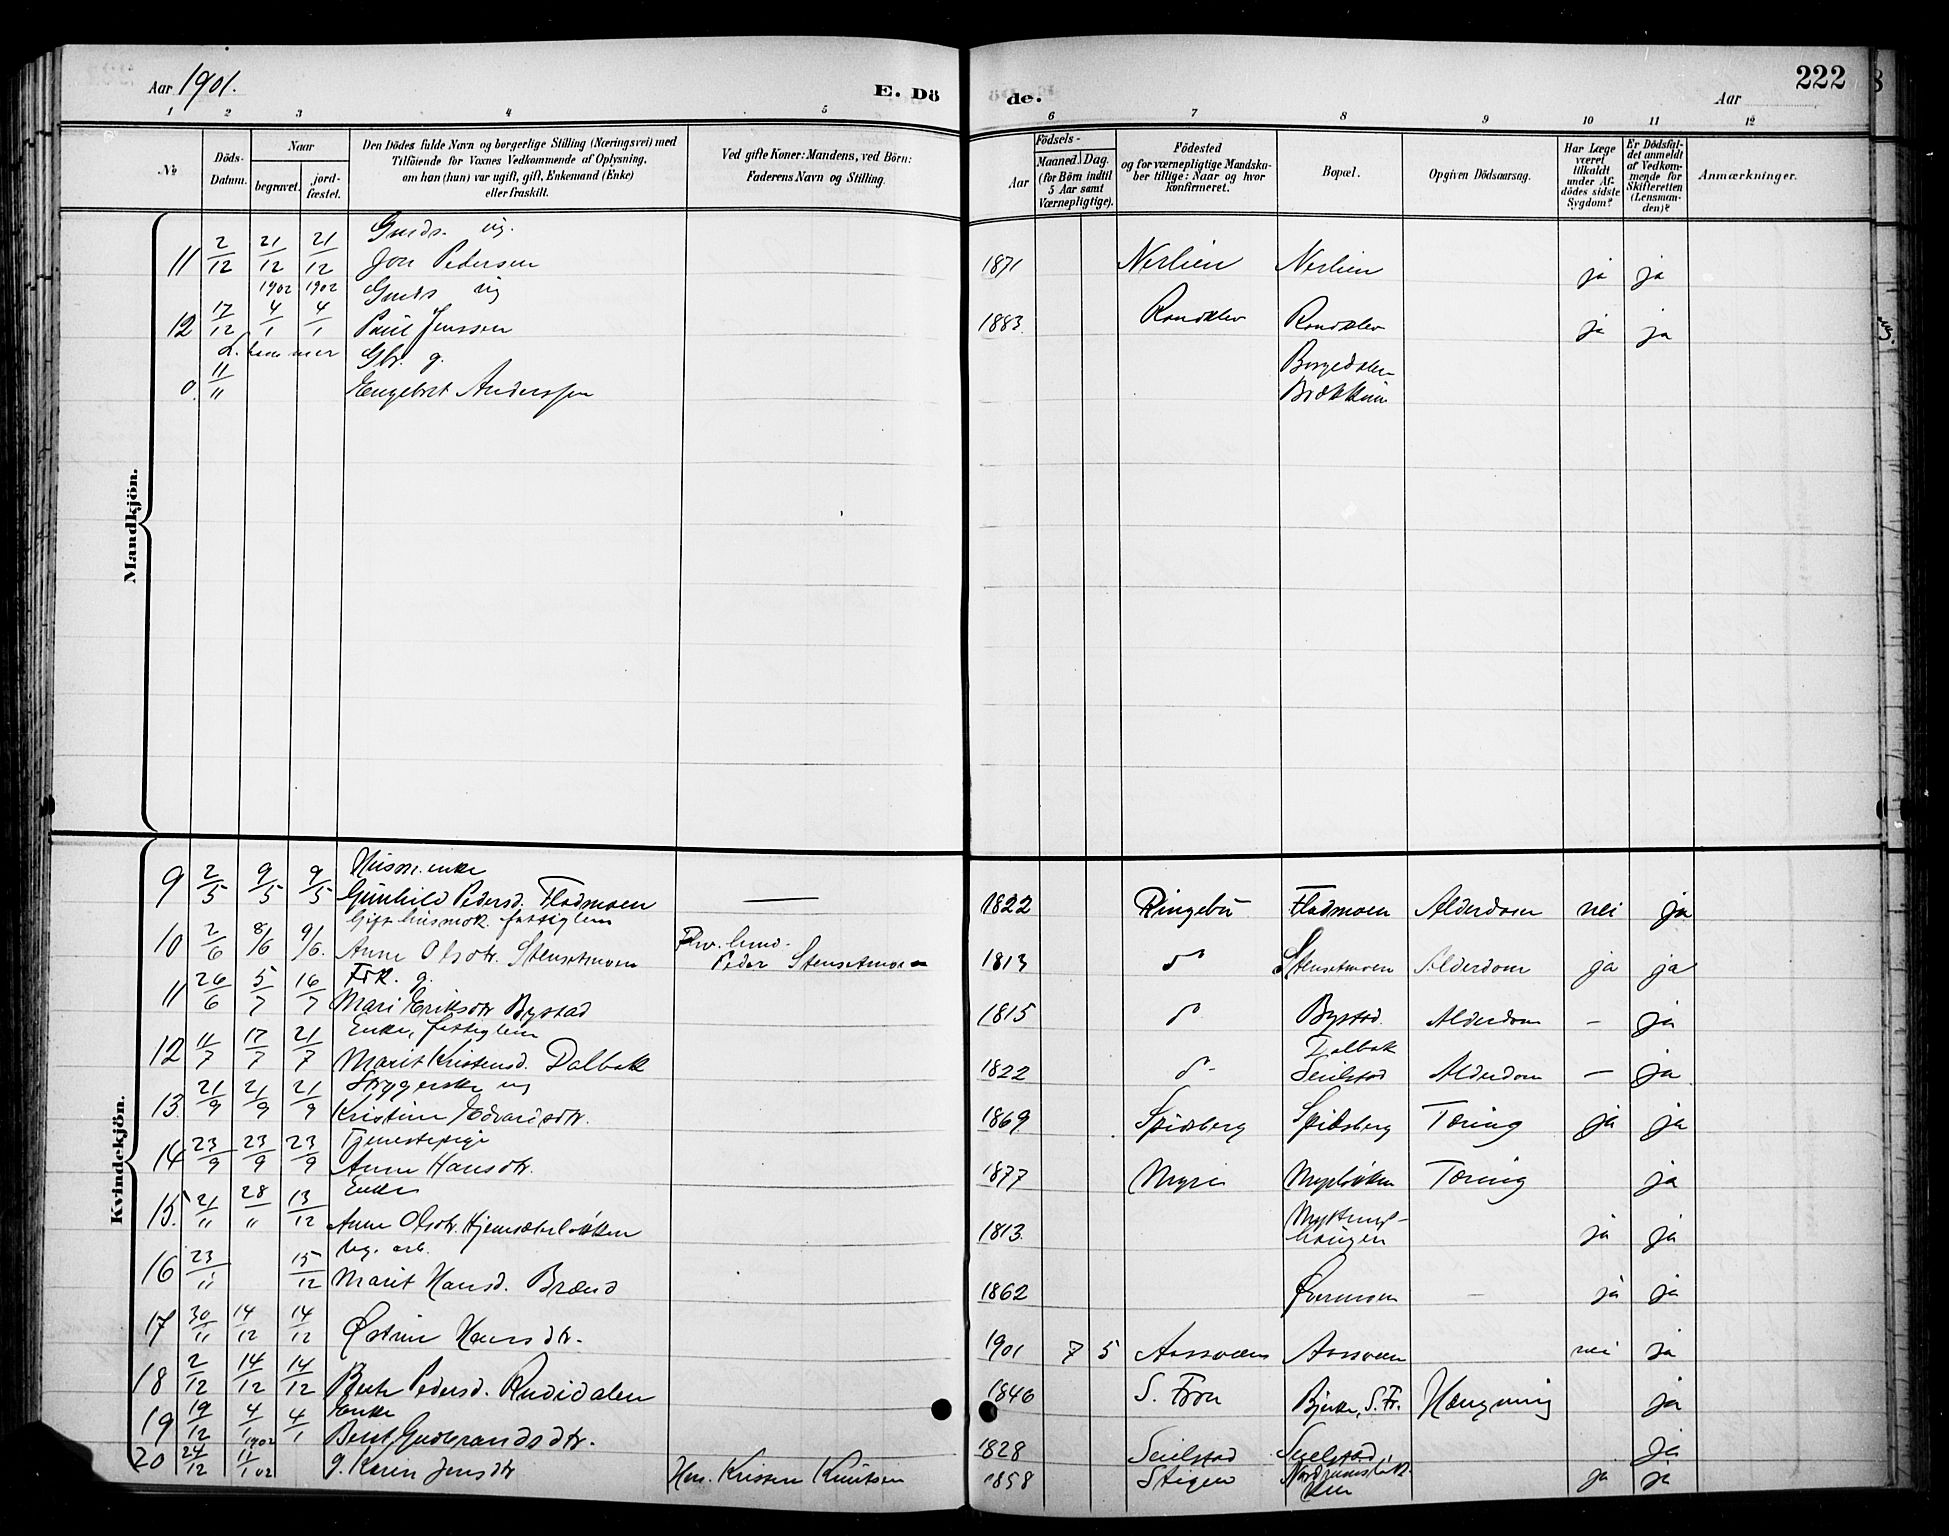 Aar 1901.
E. Dö
de.
Aar
222
1 2 3 4 5 6 7 8 9 10 11 12
No
Döds-Datum.
Naar
begravet.
jordfæstet.
Den Dödes fulde Navn og borgerlige Stilling (Næringsvei) med
Tilföiende for Voxnes Vedkommende af Oplysning,
om han (hun) var ugift, gift, Enkemand (Enke)
eller fraskilt.
Ved gifte Koner: Mandens, ved Börn:
Faderens Navn og Stilling.
Födsels-
Aar
Maaned. Dag.
(for Börn indtil
5 Aar samt
Værnepligtige).
Födested
og for værnepligtige Mandskaber tillige: Naar og hvor
konfirmeret.
Bopæl.
Opgiven Dödsaarsag.
Har Læge
været
tilkaldt
under Afdödes sidste
Sygdom?
Er Dödsfaldet anmeldt
af Vedkommende for
Skifteretten
(Lensmanden)?
Anmærkninger.
Mandkjön.
Gmds. ug.
11 2/12 21/12 21/12 Jon Pedersen 1871 Nerlien Nerlien ja ja
1902 1902 Gmds ug
12 17/12 4/1 4/1 Paul Jenssen 1883 Randklev Randklev ja ja
Gbr. g.
0. 11/11 Engebret Anderssen
Kvindekjön.
Husm. enke
9 2/5 9/5 9/5 Gunhild Pedersd. Fladmoen — 1822 Ringebu Fladmoen Alderdom nei ja
Gift husmok. fattiglem
10 2/6 8/6 9/6. Anne Olsdtr. Stensetmoen Peder Stensetmoen 1813 do Stensetmoen Alderdom ja ja
Fdk. g.
11 26/6 5/7 16/7 Mari Eriksdtr Bystad 1815 do Bystad. Alderdom - ja
Enke, fattiglem
12 11/7 17/7 21/7 Marit Kristensd. Dalbak 1822 do Dalbak Seielstad Alderdom - ja
Strygerske ug
13. 21/9 21/9 21/9 Kristine Edvardsdtr. 1869 Spidsberg Spidsberg Tæring ja ja
Tjenestepige
14 23/9 23/9 23/9 Anne Hansdtr. 1877 Myre Myrløkken Tæring ja
Enke
15. 21/11 28/11 13/12 Anne Olsdtr. Hjemsæterløkken 1813. ja ja
leg. arb.
16 23/11 15/12 Marit Hansd. Brænd 1862 Øvermoen - ja ja
17 30/11 14/12 14/12 Østine Hansdtr. 1901 7 5 Aasveen Aasveen nei ja
18 2/12 14/12 14/12 Berte Pedersd. Rudidalen 1846 S. Fron Bjerke, S. Fr. Hængning ja
Enke
19 19/12 4/1 1902 4/1 Berit Gudbrandsdtr. 1828 Seielstad Seielstad ja
20 24/12 11/1 02 g. Karin Jensdtr Hm. Kristen Knutsen 1858 Stigen ja ja